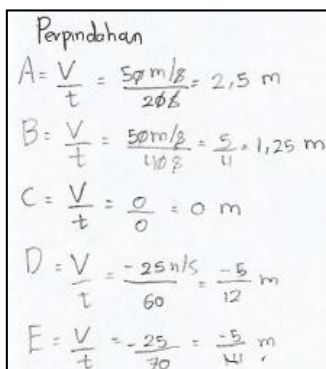 Perpindahan
A = V/t = 50 m/s / 20 s = 2,5 m
B = V/t = 50 m/s / 40 s = 5/4 = 1,25 m
C = V/t = 0/0 = 0 m
D = V/t = -25 m/s / 60 = -5/12 m
E = V/t = -25/70 = -5/14 m